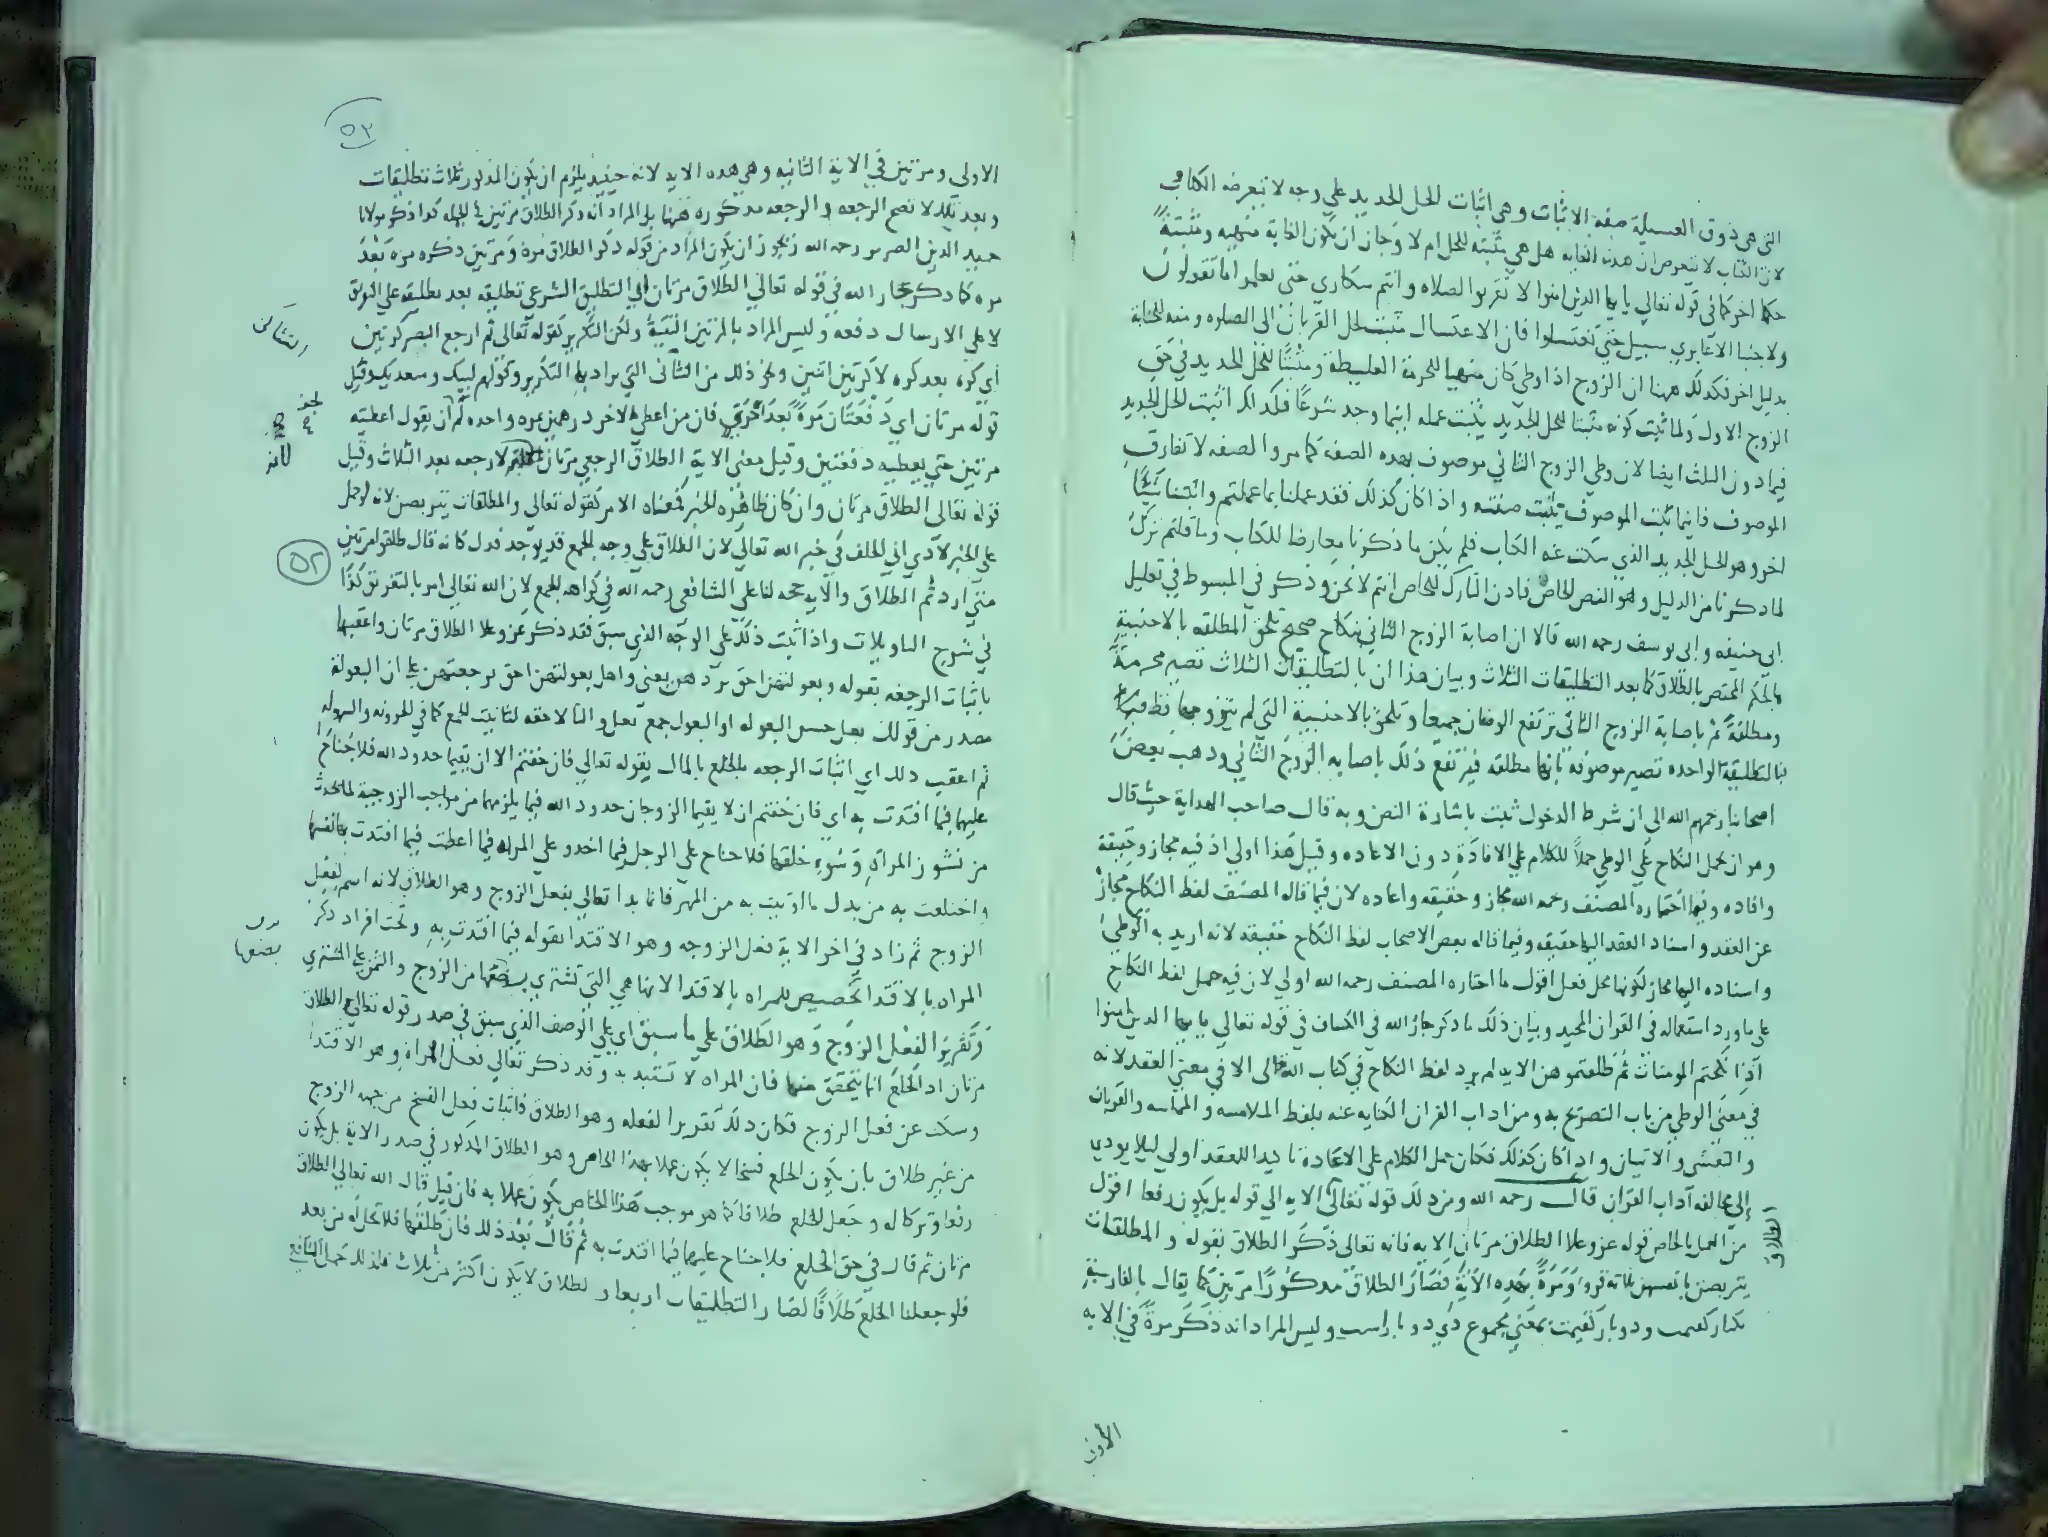 التي هي ذوق العسيلة صفة الاثبات وهي اثبات الحل الجديد على وجه لا تتعرضه الكتاب
لان الكتاب لا يتعرض ان هذه الغاية هل هي مثبتة للحل ام لا وجاز ان تكون الغاية منهية ومثبتة
حكما اخر كما في قوله تعالى يا ايها الذين امنوا لا تقربوا الصلاه وانتم سكارى حتى تعلموا ما تقولون
ولا جنبا الا عابري سبيل حتى تغتسلوا فان الاغتسال مثبت لحل القربان الى الصلوه ومنه للجنابة
بدليل اخر فكذلك ههنا ان الزوج اذا وطى كان منهيا للحرمة الغليظة ومثبتا للحل الجديد في حق
الزوج الاول ولما ثبت كونه مثبتا للحل الجديد يثبت عمله اينما وجد شرعا فلذلك اثبت الحل الجديد
فيما دون الثلث ايضا لان وطي الزوج الثاني موصوف بهذه الصفه كما مر والصفه لا تفارق
الموصوف فاينما ثبت الموصوف يثبت صفته واذا كان كذلك فقد عملنا بما عملتم واثبتنا شيئا
اخر وهو الحل الجديد الذي سكت عنه الكتاب فلم يكن ما ذكرنا معارضا للكتاب وما قلتم ترك
لما ذكرنا من الدليل وهو النص الخاص فاذن التارك للخاص انتم لا نحن وذكر في المبسوط في تعليل
ابي حنيفه وابي يوسف رحمه الله قالا ان اصابة الزوج الثاني بنكاح صحيح تلحق المطلقه بالاجنبية
بالحكم المختص بالطلاق كما بعد التطليقات الثلاث وبيان هذا ان بالتطليقات الثلاث تصير محرمة
ومطلقة ثم باصابة الزوج الثاني يرتفع الوصفان جميعا وتلحق بالاجنبية التي لم يتزوجها قط
فبالتطليقة الواحده تصير موصوفة بانها مطلقه فيرتفع ذلك باصابه الزوج الثاني وذهب بعض
اصحابنا رحمهم الله الى ان شرط الدخول ثبت باشارة النص وبه قال صاحب الهداية حيث قال
وهو ان يحمل النكاح على الوطي حملا للكلام على الافادة دون الاعاده وقيل هذا اولى اذ فيه مجاز وحقيقة
وافاده وفيما اختاره المصنف رحمه الله مجاز وحقيقه واعاده لان فيما قاله المصنف لفظ النكاح مجاز
عن العقد واسناد العقد اليها حقيقه وفيما قاله بعض الاصحاب لفظ النكاح حقيقه لانه اريد به الوطي
واسناده اليها مجاز لكونها محل فعل اقول ما اختاره المصنف رحمه الله اولى لان فيه حمل لفظ النكاح
على ما ورد استعماله في القران المجيد وبيان ذلك ما ذكر جار الله في الكشاف في قوله تعالى يا ايها الذين امنوا
اذا نكحتم المومنات ثم طلقتموهن الايه لم يرد لفظ النكاح في كتاب الله تعالى الا في معنى العقد لانه
في معنى الوطي من باب التصريح به ومن اداب القران الكنايه عنه بلفظ الملامسه والمماسه والقربان
والتغشي والاتيان واذا كان كذلك فكان حمل الكلام على الاعادة تاكيدا للعقد اولى ليلا يودي
الى مخالفه آداب القران قال رحمه الله ومن ذلك قوله تعالى الايه الى قوله بل يكون رفعا اقول
من العمل بالخاص قوله عز وعلا الطلاق مرتان الايه فانه تعالى ذكر الطلاق بقوله والمطلقات
يتربصن بانفسهن ثلاثة قروء ومرة بهذه الاية فصار الطلاق مذكورا مرتين كما يقال بالفارسية
وليس المراد انه ذكر مرة في الايه
الطلاق
الاولى
٥٣
الاولى ومرتين في الاية الثانيه وهي هذه الايه لانه حينئذ يلزم ان يكون المذكور ثلاث تطليقات
وبعد ذلك لا تصح الرجعه والرجعه مذكوره ههنا بل المراد انه ذكر الطلاق مرتين في الجمله كذا ذكر مولانا
حميد الدين الضرير رحمه الله ويجوز ان يكون المراد من قوله ذكر الطلاق مرة ومرتين ذكره مره بعد
مره كما ذكر جار الله في قوله تعالى الطلاق مرتان اي التطليق الشرعي تطليقه بعد تطليقه على التفريق
لا على الارسال دفعه وليس المراد بالمرتين التثنية ولكن التكرير كقوله تعالى ثم ارجع البصر كرتين
اي كرة بعد كره لا كرتين اثنتين ونحو ذلك من الثنائي التي يراد بها التكرير وكقولهم لبيك وسعديك وقيل
قوله مرتان اي دفعتان مرة بعد اخرى فان من اعطى لاخر درهمين بمره واحده لم يجز ان يقول اعطيته
مرتين حتى يعطيه دفعتين وقيل معنى الاية الطلاق الرجعي مرتان لا رجعه بعد الثلاث وقيل
قوله تعالى الطلاق مرتان وان كان ظاهره الخبر فمعناه الامر كقوله تعالى والمطلقات يتربصن لانه لو حمل
على الخبر لادى الى الخلف في خبر الله تعالى لان الطلاق على وجه الجمع قد يوجد فدل كانه قال طلقوا مرتين
متى اردتم الطلاق والايه حجه لنا على الشافعي رحمه الله في كراهه الجمع لان الله تعالى امر بالتفريق كذا
في شروح التاويلات واذا ثبت ذلك على الوجه الذي سبق فقد ذكر عز وعلا الطلاق مرتان واعقبها
باثبات الرجعه بقوله وبعولتهن احق بردهن يعني واهل بعولتهن احق برجعتهن على ان البعولة
مصدر من قولك بعل حسن البعوله او البعول جمع بعل والتا لاحقه لتانيث الجمع كما في الحزونه والسهوله
ثم اعقب ذلك اي اثبات الرجعه بالخلع بالمال بقوله تعالى فان خفتم الا ان يقيما حدود الله فلا جناح
عليهما فيما افتدت به اي فان خفتم ان لا يقيما الزوجان حدود الله فيما يلزمهما من مواجب الزوجية لما يحدث
من نشوز المرآة وسوء خلقها فلا جناح على الرجل فيما اخذ و على المراه فيما اعطت فيما افتدت به نفسها
واختلعت به من بدل ما اوتيت به من المهر فانما بدا تعالى بفعل الزوج وهو الطلاق لانه اسم لفعل
الزوج ثم زاد في اخر الاية فعل الزوجه وهو الافتدا بقوله فيما افتدت به وتحت افراد ذكر
المراه بالافتدا تخصيص للمراه بالافتدا لانها هي التي تشتري بضعها من الزوج والثمن على المشتري
وتقريرا لفعل الزوج وهو الطلاق على ما سبق اي على الوصف الذي سبق في صدر قوله تعالى الطلاق
مرتان اذ الخلع انما يتحقق منهما فان المراه لا تستبد به وقد ذكر تعالى فعل المراة وهو الافتدا
وسكت عن فعل الزوج فكان ذلك تقريرا لفعله وهو الطلاق فاثبات فعل الفسخ من جهه الزوج
من غير طلاق بان يكون الخلع فسخا لا يكون عملا بهذا الخاص وهو الطلاق المذكور في صدر الاية بل يكون
رفعا وتركا له وجعل الخلع طلاقا كما هو موجب هذا الخاص يكون عملا به فان قيل قال الله تعالى الطلاق
مرتان ثم قال في حق الخلع فلا جناح عليهما فيما افتدت به ثم قال بعد ذلك فان طلقها فلا تحل له من بعد
فلو جعلنا الخلع طلاقا لصار التطليقات اربعا والطلاق لا يكون اكثر من ثلاث فلذلك حمل الشافعي
٥٢
بضعها